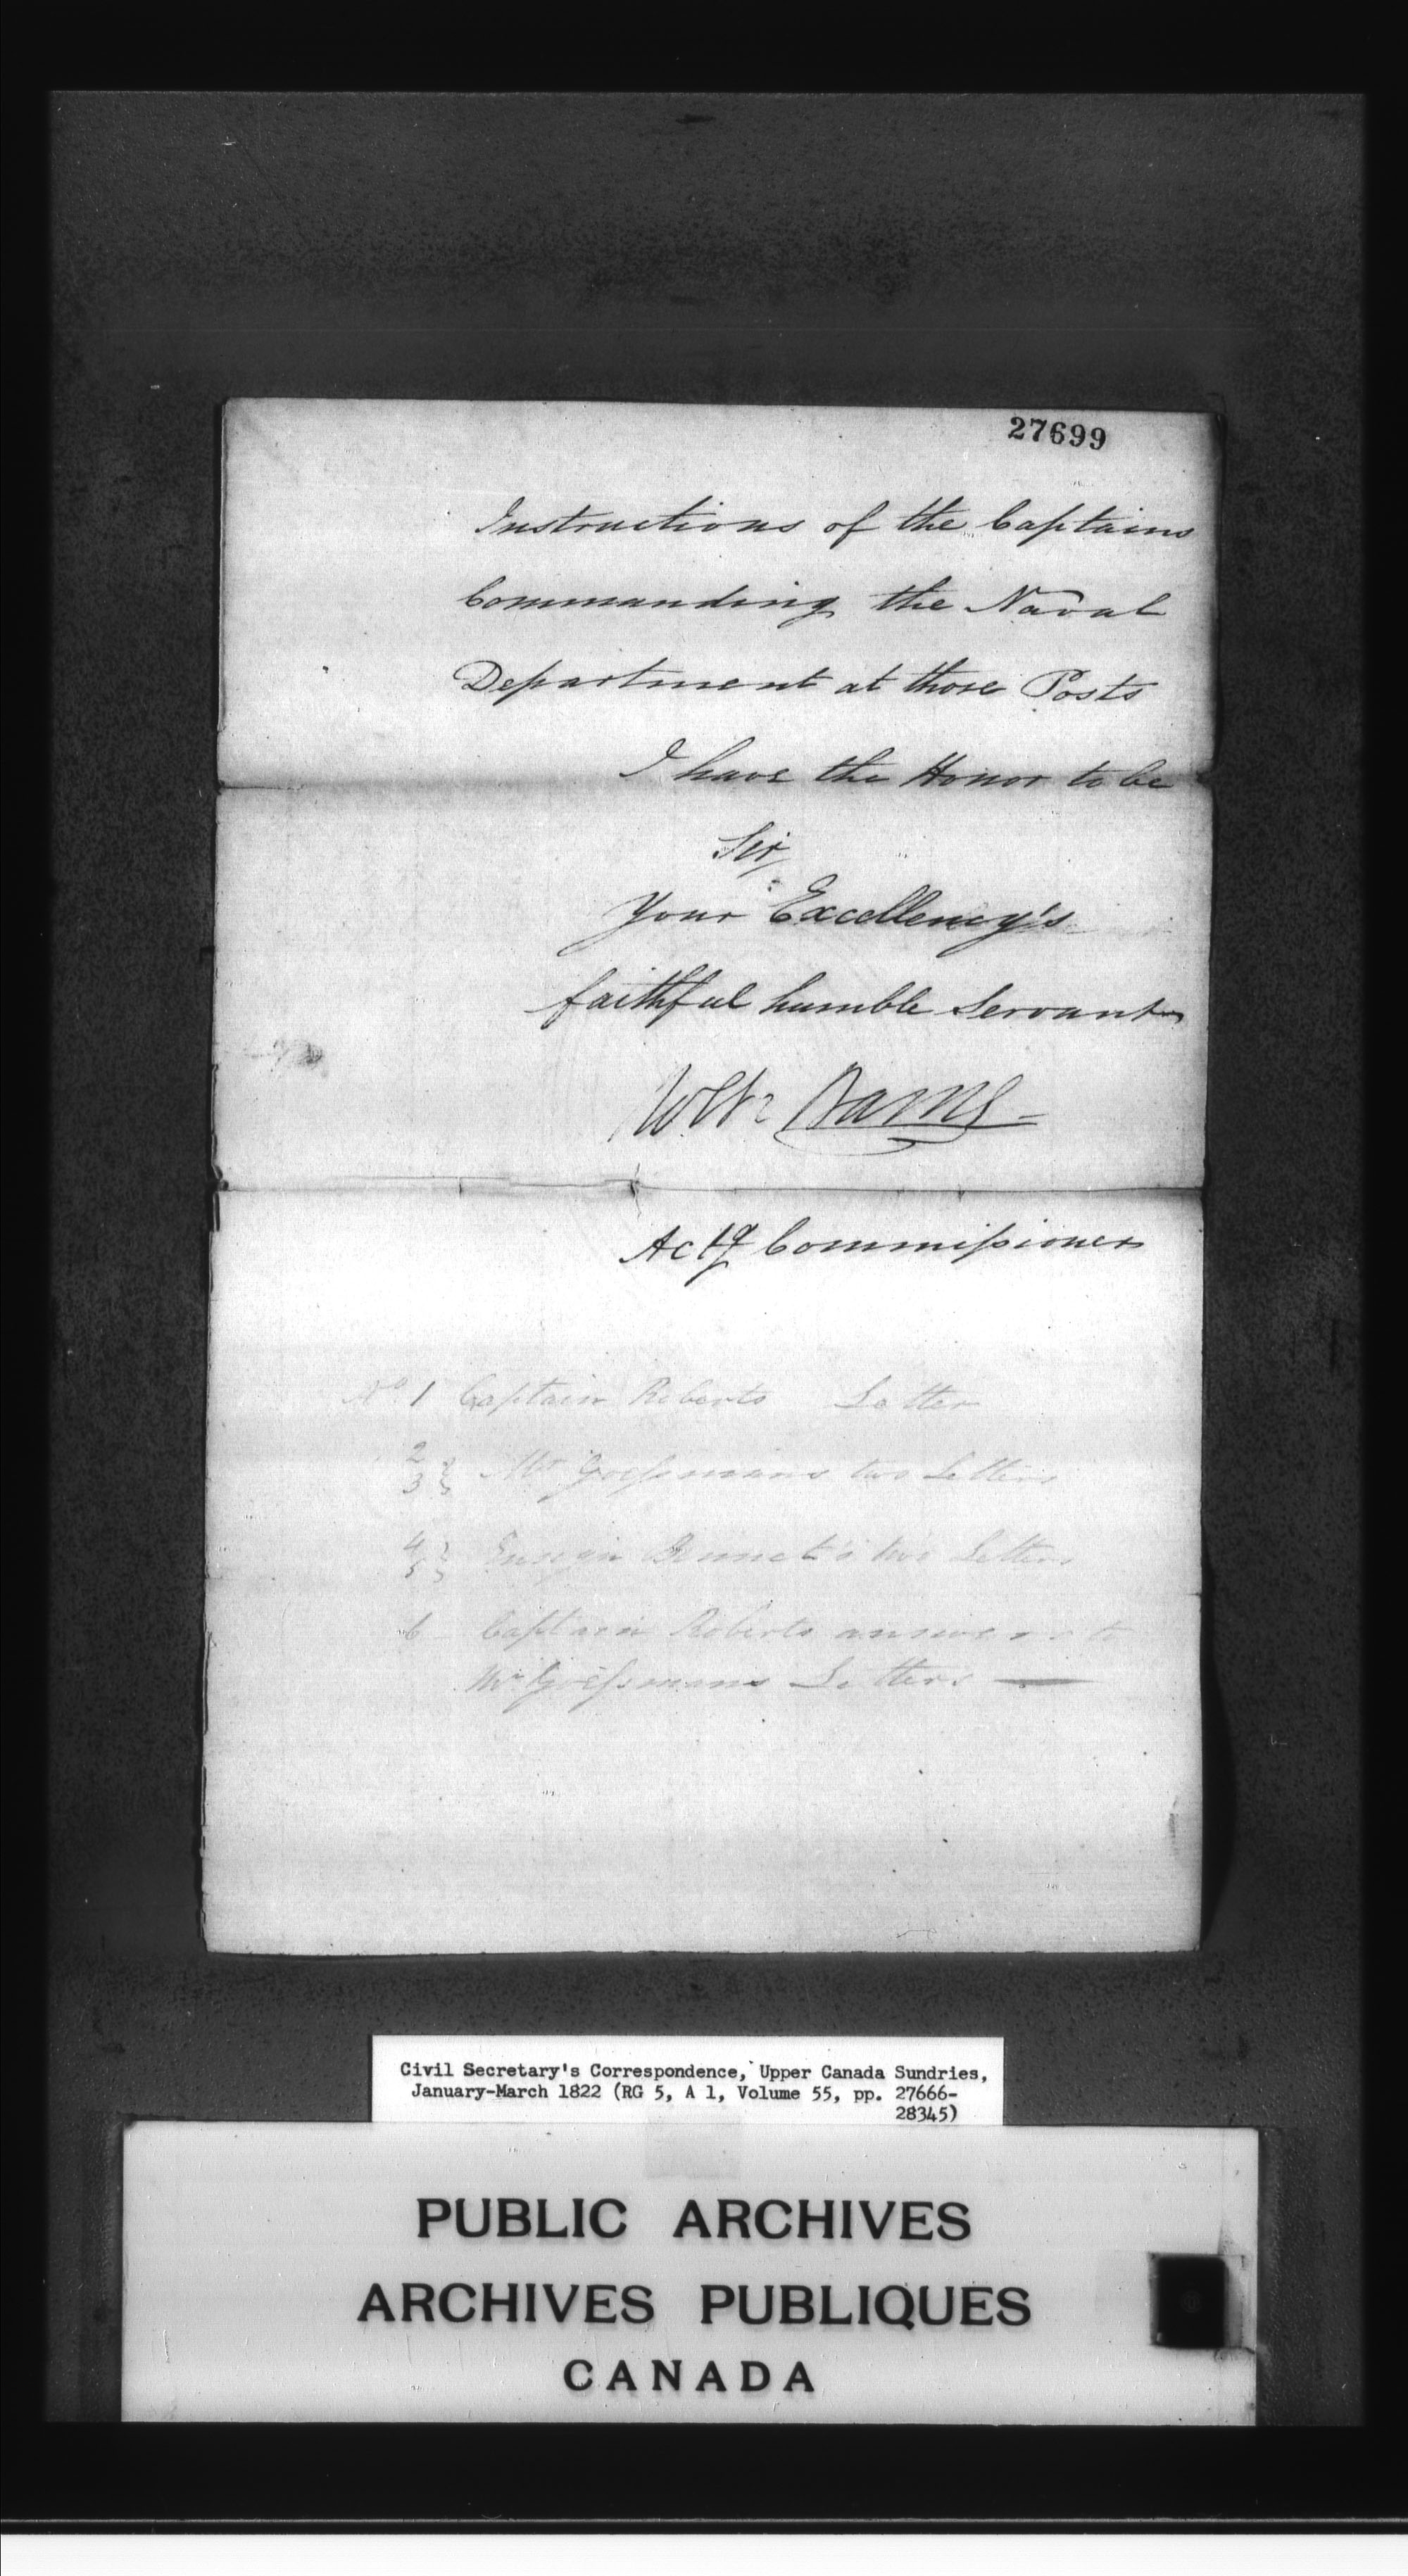 27699
Instructions of the Captains
Commanding the Naval
Department at those Posts
I have the Honor to be
Sir,
Your Excellency's
faithful humble Servant
Actg Commissioner
No. 1 Captain Roberts Letter
2
3 } Mr Goessmans two Letters
4
5 } Ensign Bennet's two Letters
6 Captain Roberts answers to
Mr Goessmans Letters —
Civil Secretary's Correspondence, Upper Canada Sundries,
January-March 1822 (RG 5, A 1, Volume 55, pp. 27666-
28345)
PUBLIC ARCHIVES
ARCHIVES PUBLIQUES
CANADA